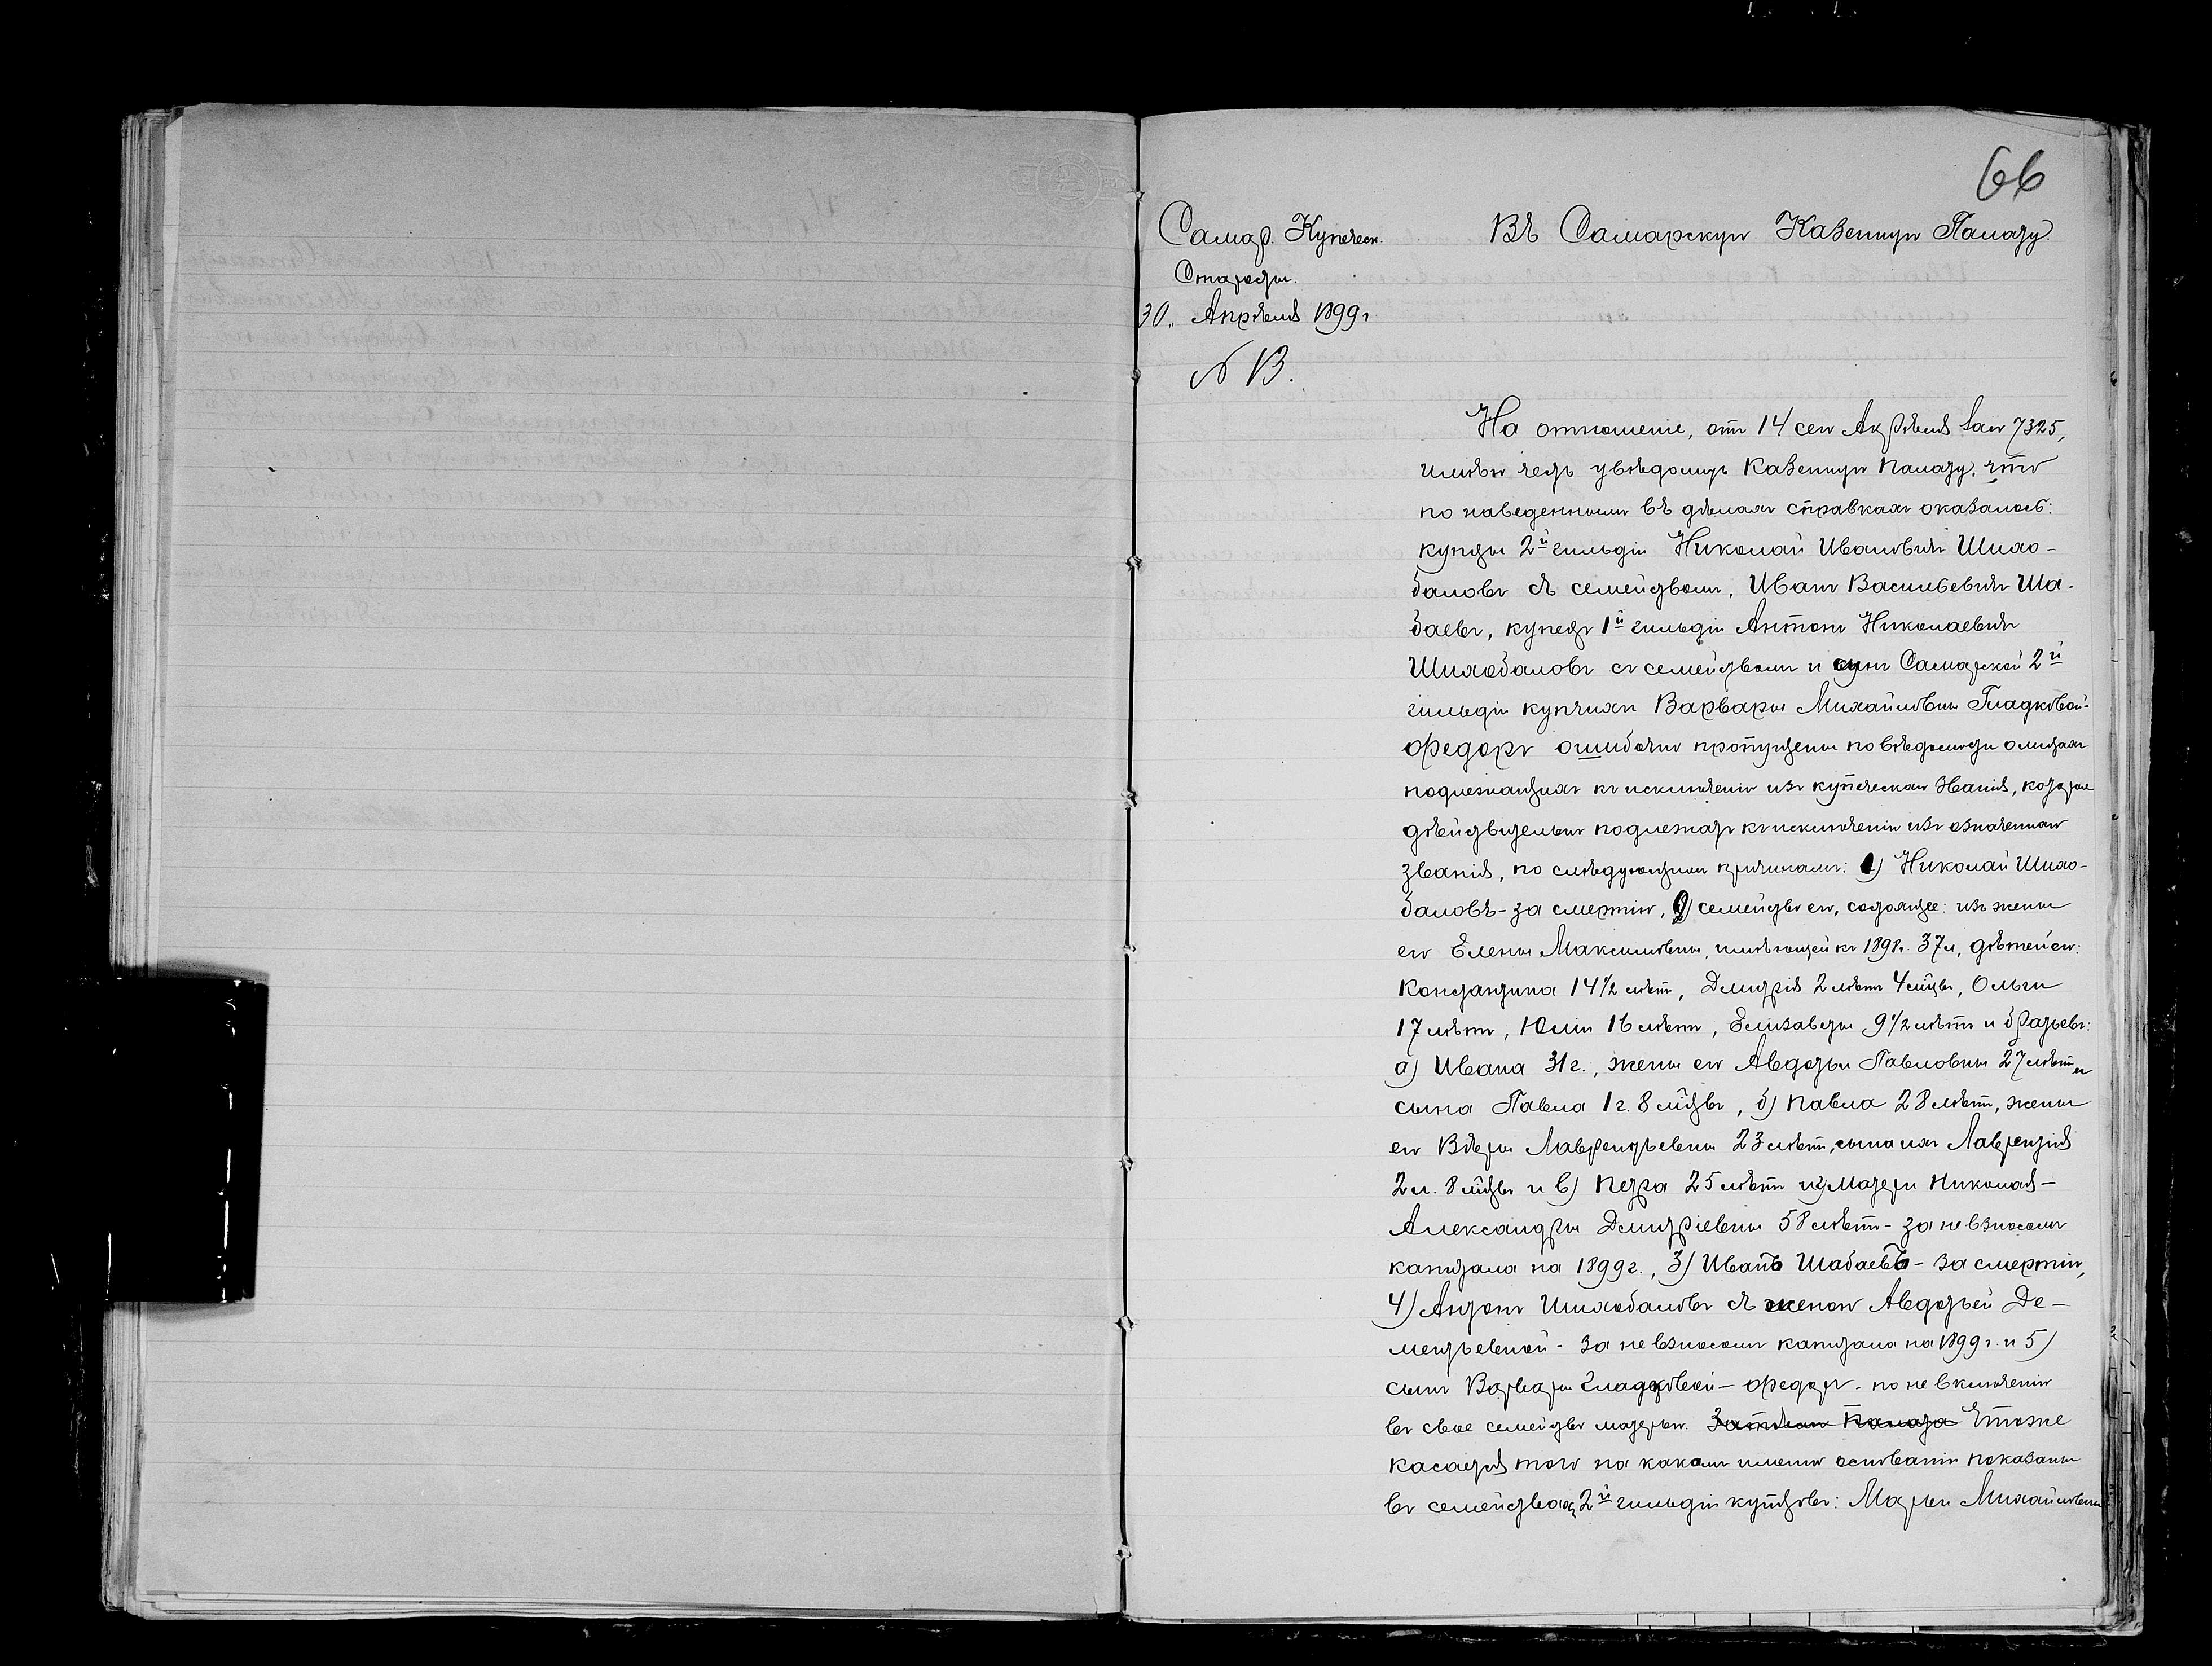 66
Самар. Купеческ.
Старосты.
30. Апрѣля 1899 г
№ 13.
Въ Самарскую Казенную Палату.
На отношеніе, отъ 14 сего Апрѣля за № 7325,
имѣю честь увѣдомить Казенную Палату, что
по наведеннымъ въ дѣлахъ справкамъ оказалось:
купцы 2й гильдіи Николай Ивановичъ Шихо-
баловъ съ семействомъ, Иванъ Васильевичъ Ша-
баевъ, купецъ 1й гильдіи Антонъ Николаевичъ
Шихобаловъ съ семействомъ и сынъ Самарской 2й
гильдіи купчихи Варвары Михайловны Гладковой-
Федоръ ошибочно пропущены по вѣдомости о лицахъ
подлежащихъ къ исключенію изъ купеческаго званія, которые
дѣйствительно подлежатъ къ исключенію изъ означеннаго
званія, по слѣдующимъ причинамъ: 1) Николай Шихо-
баловъ - за смертію, 2) семейство его, состоящее: изъ жены
его Елены Максимовны, имѣющей къ 1898 г. 37 л, дѣтей его:
Константина 14 1/2 лѣтъ, Дмитрія 2 лѣтъ 4 мѣцевъ, Ольги
17 лѣтъ, Юліи 16 лѣтъ, Елизаветы 9 1/2 лѣтъ и братьевъ:
а) Ивана 31 г., жены его Авдотьи Павловны 27 лѣтъ и
сына Павла 1 г. 8 мѣцевъ, б) Павла 28 лѣтъ, жены
его Вѣры Лаврентьевны 23 лѣтъ, сына ихъ Лаврентія
2 л. 8 мѣцевъ и в) Петра 25 лѣтъ и матери Николая -
Александры Дмитріевны 58 лѣтъ - за невзносомъ
капитала на 1899 г., 3) Иванъ Шабаевъ - за смертію,
4) Антонъ Шихобаловъ съ женою Авдотьей Де-
ментьевной - за невзносомъ капитала на 1899 г. и 5)
сынъ Варвары Гладковой - Федоръ - по невключенію
въ свое семейство матерью. Затѣмъ Палата Что же
касается того на какомъ именно основаніи показаны
въ семействахъ 2й гильдіи купцовъ: Марьи Михайловны